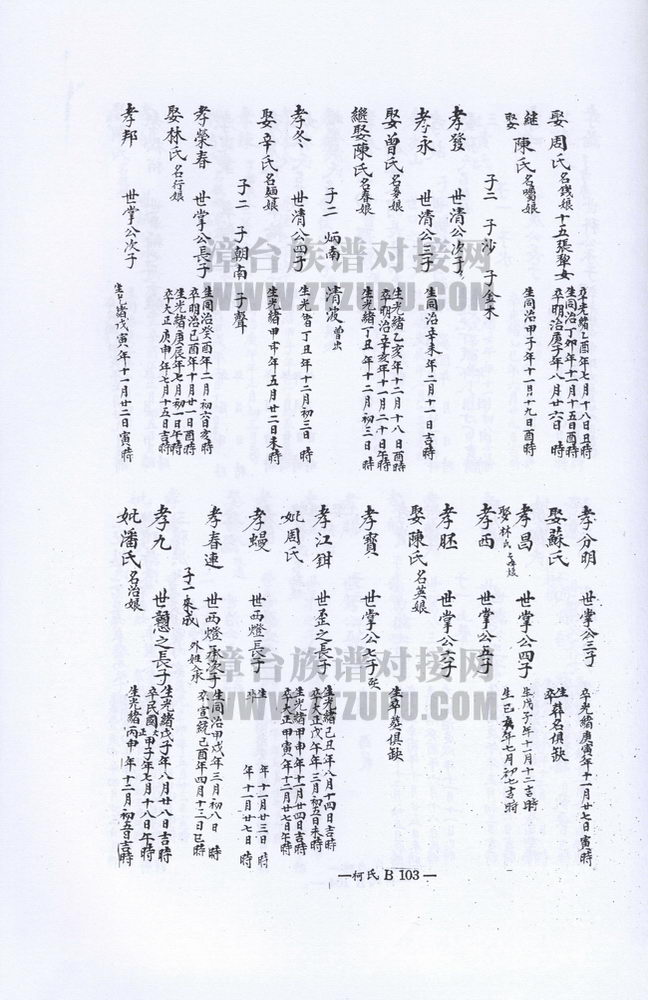 娶周氏名錢娘 十五張犂女
卒光緒乙酉年七月十八日丑時
生同治丁卯年十一月十五日酉時
卒明治庚子年八月十六日 時
繼娶陳氏名囑娘
生同治甲子年十一月十九日酉時
子三 子沙 子金木
孝發 世清公次子
孝永 世清公三子
生同治辛未年二月十一日吉時
娶曾氏名
生光緒乙亥年十二月十八日酉時
卒明治辛亥年十一月二十日午時
繼娶陳氏名春娘
生光緒丁丑年十二月初三日 時
子二 炳南 清波
孝冬 世清公四子
生光緒丁丑年十二月初三日 時
娶辛氏名麺娘
生光緒甲申年五月廿二日未時
子二 子朝南 子聲
孝榮春 世掌公長子
生同治癸酉年二月初六日亥時
卒明治己酉年十月廿一日酉時
娶林氏名行娘
生光緒庚辰年七月初一日午時
卒大正庚申年七月十五日吉時
孝邦 世掌公次子
生光緒戊寅年十一月廿二日寅時
孝分明 世掌公三子
卒光緒庚寅年十一月廿七日寅時
娶蘇氏
生卒葬名俱缺
孝昌 世掌公四子
生戊子年十一月十二吉時
娶林氏
生己亥年七月初七吉時
孝西 世掌公五子
孝胚 世掌公六子
娶陳氏名英娘
生卒葬俱缺
孝寶 世掌公七子
孝江鉗 世歪之長子
生光緒己丑年八月十四日吉時
卒大正戊午年三月初五日未時
妣周氏
生光緒甲申年十一月廿四日吉時
卒大正甲寅年十二月廿七日午時
孝蟃 世西燈長子
生 年十一月廿三日 時
卒 年十一月廿七日 時
孝春連 世西燈承次子
生同治甲戌年三月初八日 時
卒宣統己酉年四月十二日巳時
子一來成 外姓入承
孝九 世戇之長子
生光緒戊子年八月廿八日吉時
卒民國甲子年七月十八日午時
妣潘氏名治娘
生光緒丙申年十二月初五日吉時
—柯氏 B 103—
漳台族谱对接网
WWW.ZTZUPU.COM
漳台族谱对接网
WWW.ZTZUPU.COM